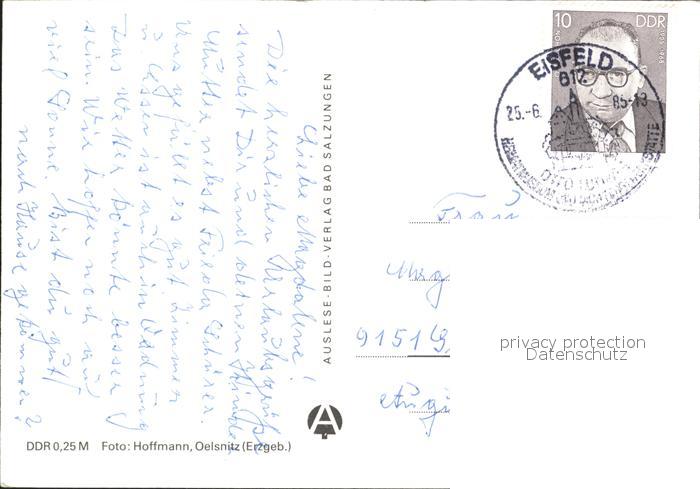 Liebe Magdalene!
Die herzlichen Urlaubsgrüße
sendet Dir und deinen Kinder
Mütter nebst Frieda
Uns gefällt es gut Zimmer
u. Essen ist auch in Ordnung
Das Wetter könnte besser
sein. Wir hoffen noch auf
viel Sonne. Bist du gut
nach Hause gekommen?
AUSLESE-BILD-VERLAG BAD SALZUNGEN
10 DDR
EISFELD
612
25.-6. 85-13
OTTO LUDWIG
Frau
Mag
9151
DDR 0,25 M Foto: Hoffmann, Oelsnitz (Erzgeb.)
privacy protection
Datenschutz